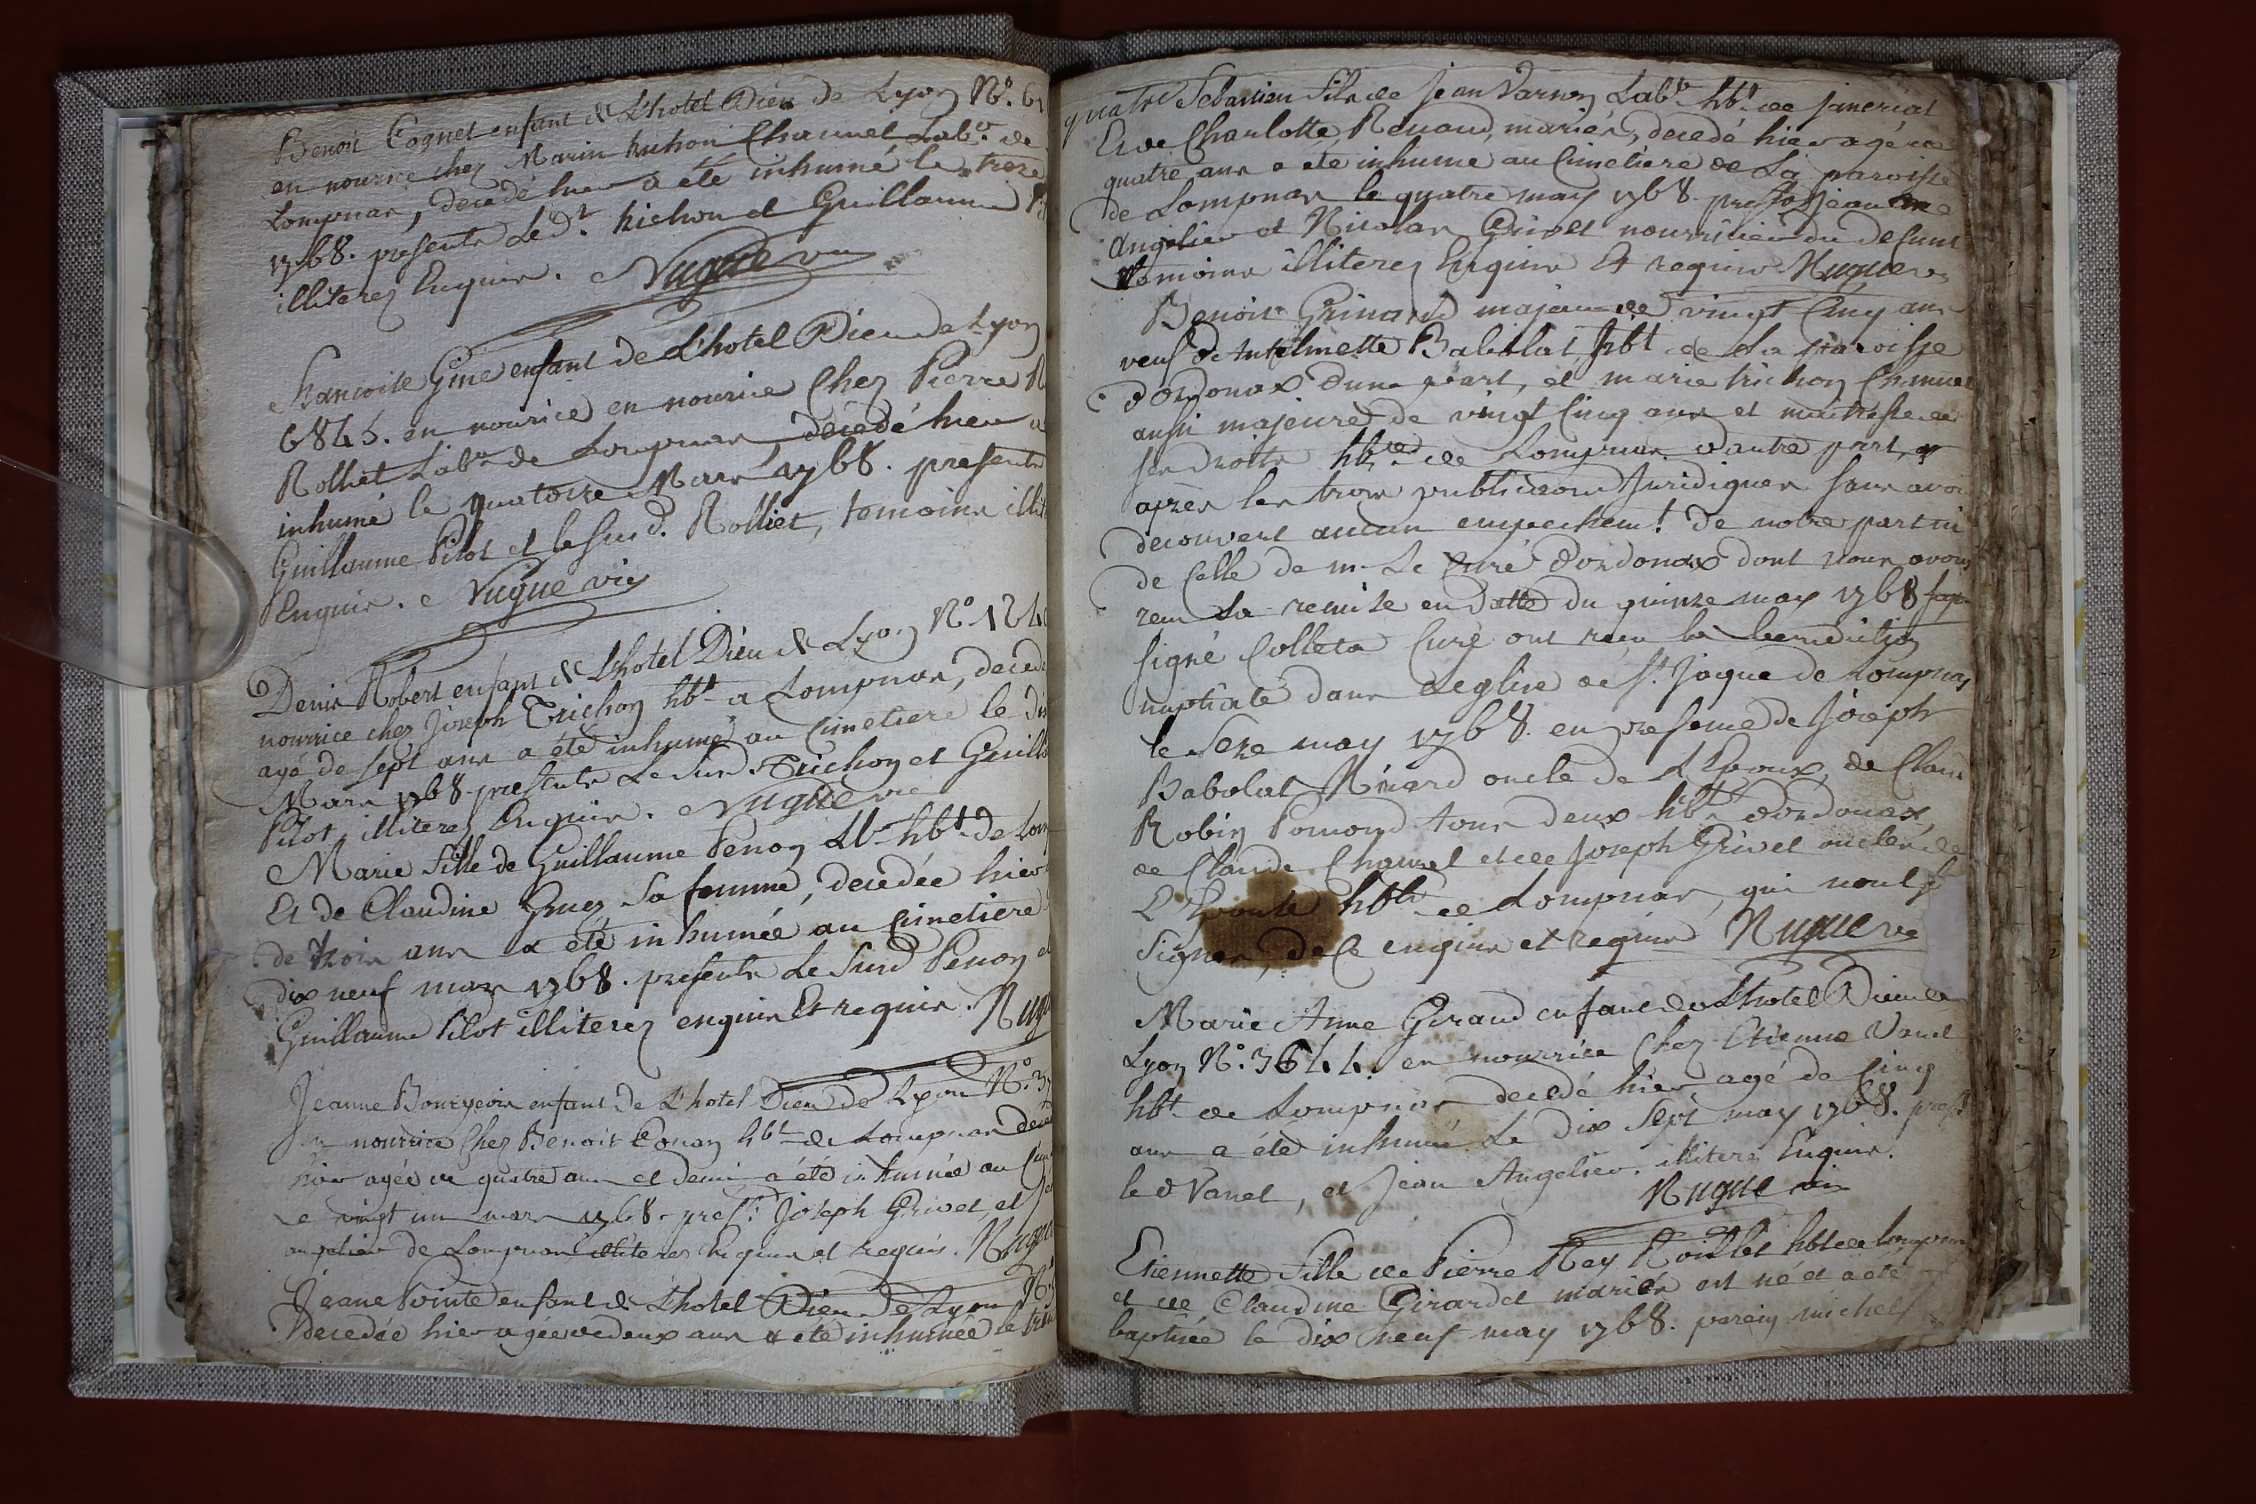 Benoit Cognet enfant de L'hotel Dieu de Lyon N°. 6
en nourrice chez Marin trichon Charvet Labr. de
Lompnas, decedé hier a été inhumé le treze
1768. presents Led.t trichon et Guillaume
illiterez Enquis. Nugue vic
francoise Gine enfant de L'hotel Dieu de Lyon
6845. en nourice en nourice Chez Pierre R
Rolliet Labr de Lompnas, décédé hier a
inhumé le quatorze Mars 1768. presents
Guillaume Pilot et le susd. Rolliet, temoins illit
Enquis. Nugue vic
Denis Robert enfant de L'hotel Dieu de Lyon N°. 124
nourrice chez Joseph Trichon hbt a Lompnas, decedé
agé de sept ans a été inhumé au Cimetiere le dix
Mars 1768 presents Le Susd. Trichon et Guill
Pilot, illiterez Enquis. Nugue vic
Marie fille de Guillaume Penon Lbr hbt. de Lom
Et de Claudine Sa femme, decedée hier
de trois ans a été inhumée au Cimetiere
dix neuf mars 1768. presents Le Susd Penon et
Guillaume Pilot illiterez enquis Et requis. Nugu
Jeanne Bourgeois enfant de L'hotel Dieu de Lyon N°. 37
En nourrice Chez Benoit Conan hbt de Lompnas deced
hier agée de quatre ans et demi a été inhumée au Cim
Le vingt un mars 1768. prest: Joseph Grivet, et Je
angelier de Lompnas illiterez Enquis et requis. Nugue
Jeane Pointe enfant de L'hotel Dieu de Lyon N°
decedée hier agée de deux ans a été inhumée le tren
quatre Sebastien fils de Jean Varnon Labr. hbt. de
Et de Charlotte Renaud, mariés, decedé hier agé de
quatre ans a été inhumé au Cimetiere de La paroisse
de Lompnas le quatre may 1768. prests jean
angelier et Nicolas Grivet nourricier du defunt
temoins illiterez Enquis Et requis. Nugue vic
Benoit Grinard majeur de vingt Cinq ans
veuf de Antelmette Babolat, hbt de La Paroisse
d'Ordonax d'une part, et marie trichon Charvet
aussi majeure de vingt Cinq ans et maitresse de
ses droits hbte de Lompnas d'autre part,
après les trois publications Juridiques sans avoir
decouvert aucun empechemt. de notre part ni
de Celle de mr Le Curé d'ordonax dont nous avons
reçu La remise en datte du quinze may 1768
signé Colleta Curé ont reçu la benediction
nuptiale dans L'eglise de St. Jaque de Lompnas
le Seze may 1768. en presence de Joseph
Babolat oncle de L'Epoux, de Claude
Robin Pomond tous deux hbts d'ordonax,
de Claude Charvel et de Joseph Grivet oncles de
L'Epouse hbts de Lompnas, qui n'ont sçu
Signer, de Ce enquis et requis Nugue vic
Marie Anne Giraud enfant de L'hotel Dieu de
Lyon N°. 3644. en nourrice Chez Etienne Vanel
hbt de Lompnas decedé hier agé de Cinq
ans a été inhumé Le Dix Sept may 1768. prests
le d Vanel, et Jean Angelier. illiterez Enquis.
Nugue vic
Etiennette fille de Pierre Rey hbt de Lompnas
et de Claudine Girardet mariés est né et a été
baptisée le dix neuf may 1768. parein michel